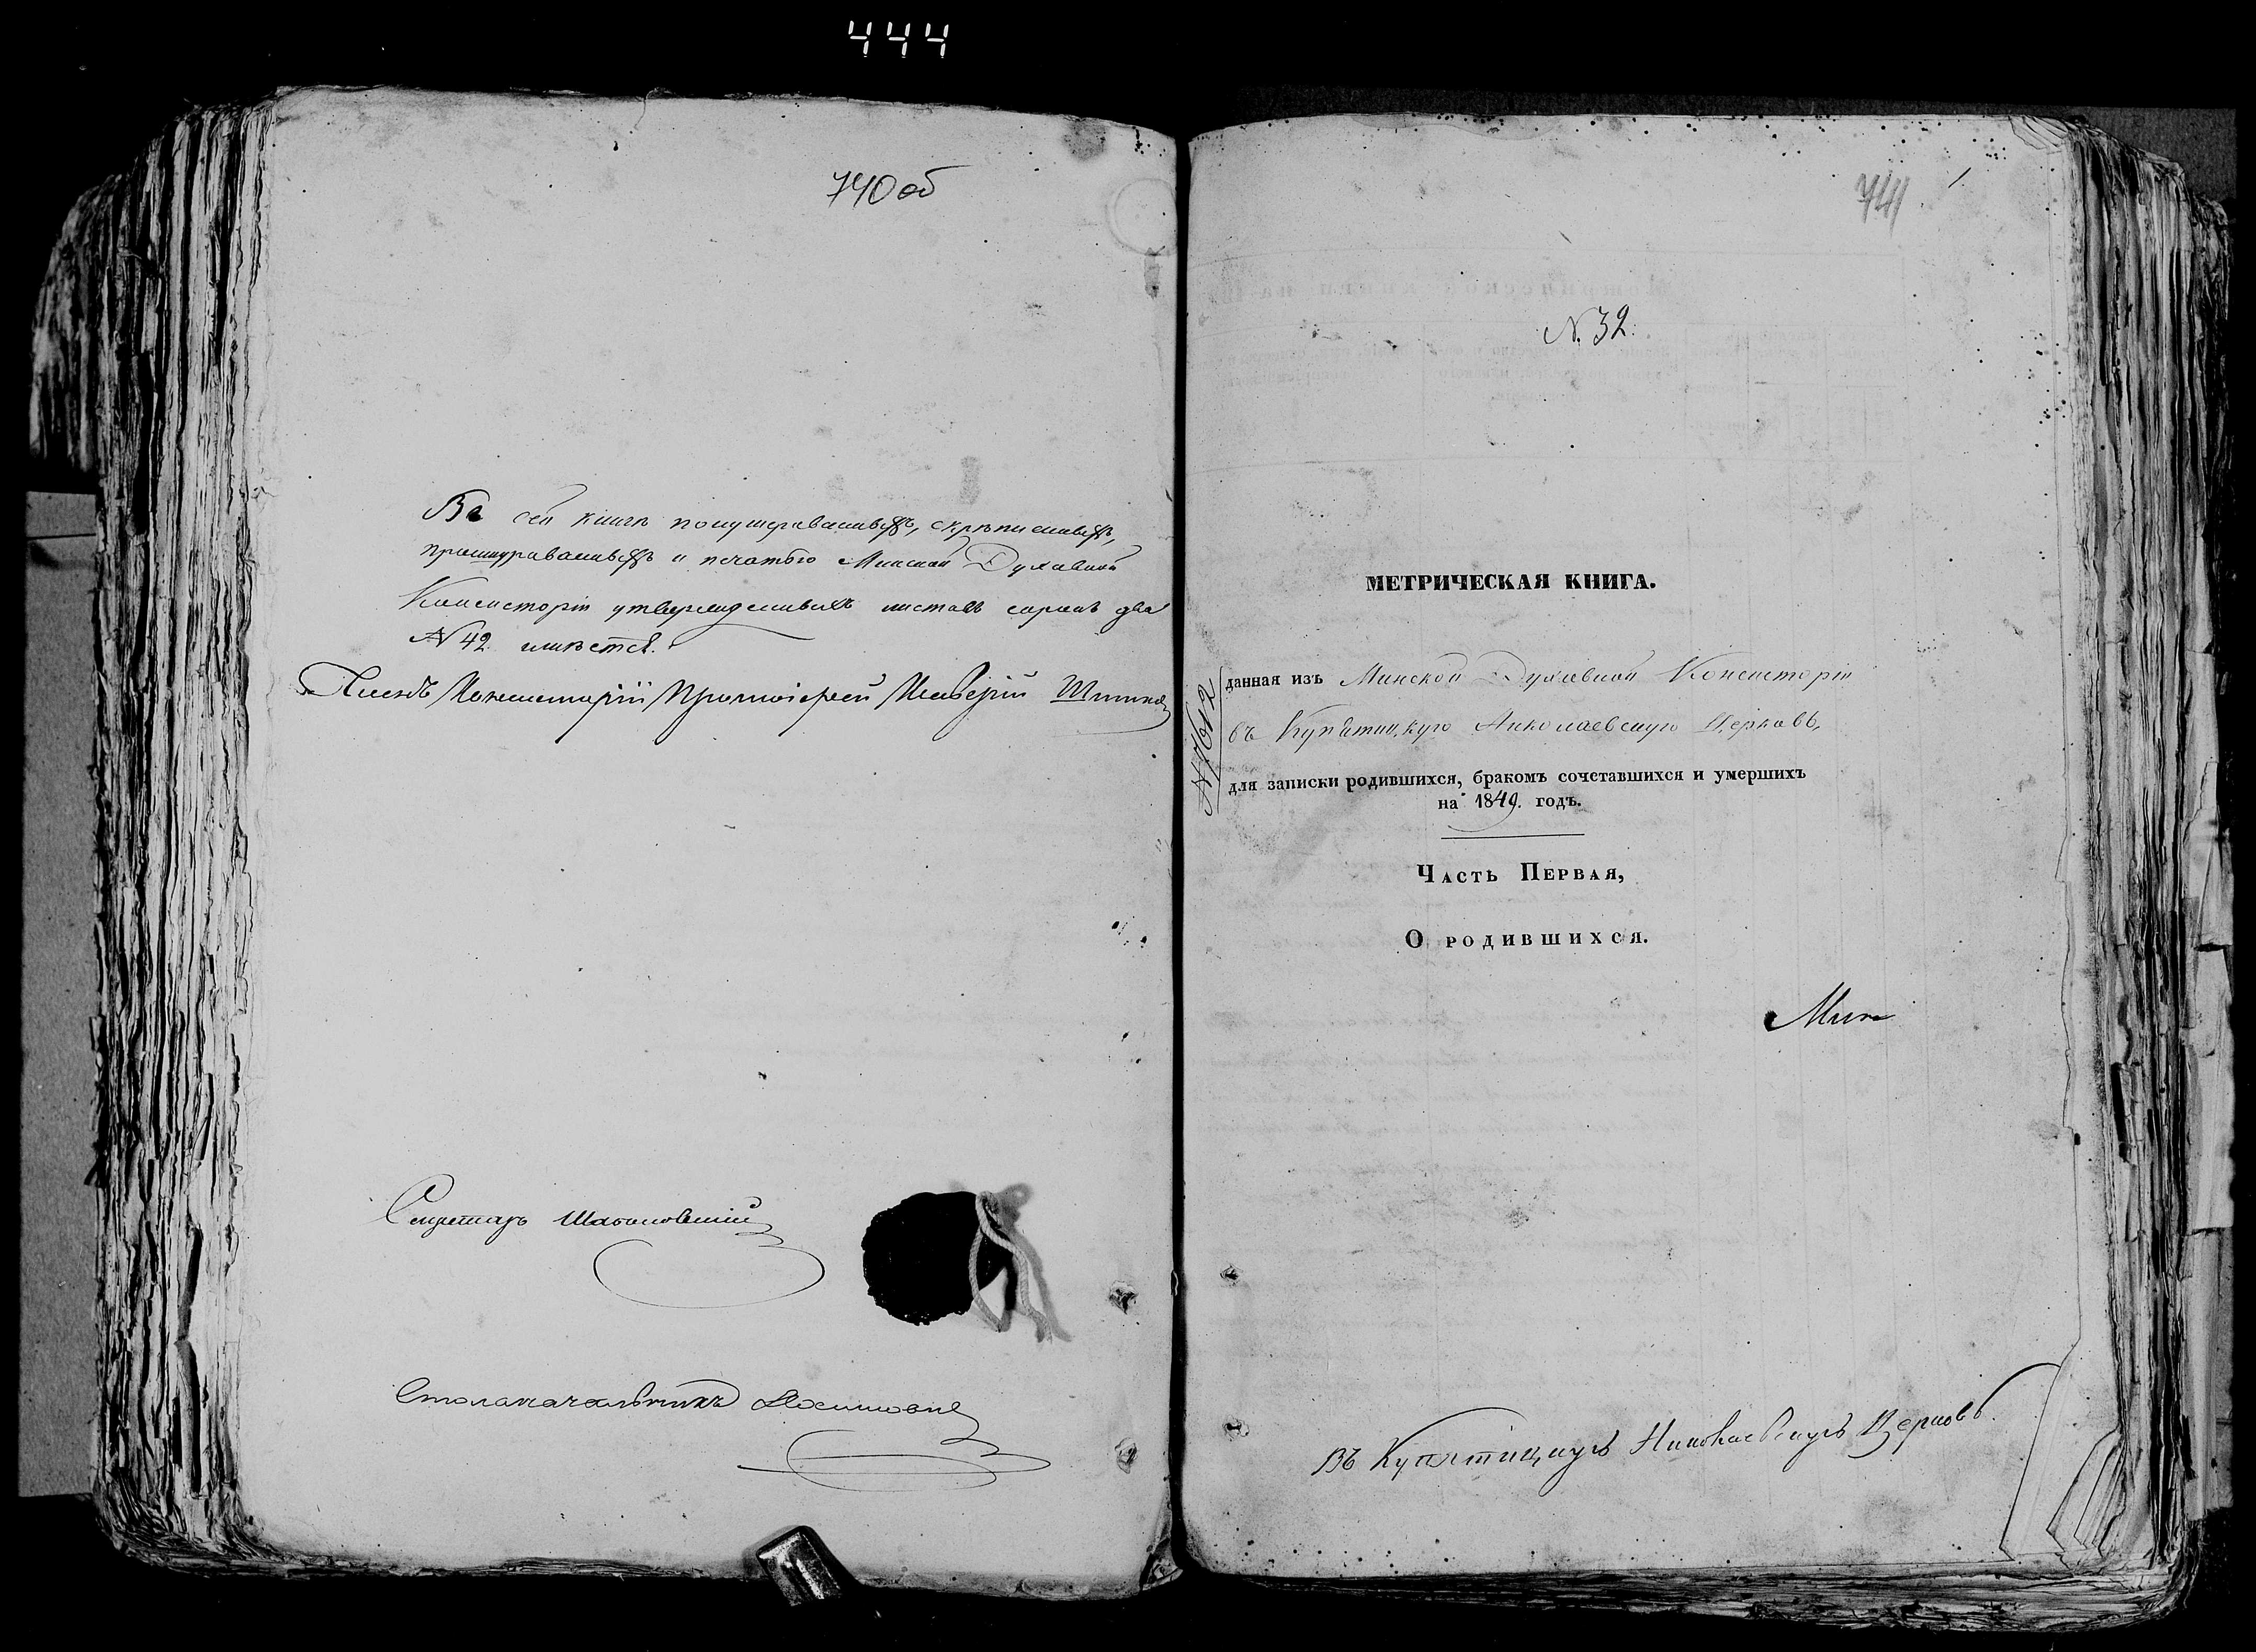 444
740 об
Въ сей книгѣ нонумерованныхъ, скрѣпленныхъ,
прошнурованныхъ и печатью Минской Духовной
Консисторіи утвержденныхъ листовъ сорокъ два
№ 42. имѣется.
Членъ Консисторіи Протоіерей
Секретарь
Столоначальникъ
741 1.
N. 32.
МЕТРИЧЕСКАЯ КНИГА.
данная изъ Минской Духовной Консисторіи
въ Купятицкую Николаевскую Церковь,
№ 7612
для записки родившихся, бракомъ сочетавшихся и умершихъ
на 1849. годъ.
Часть Первая,
О родившихся.
Мин
Въ Купятицкую Николаевскую Церковь.